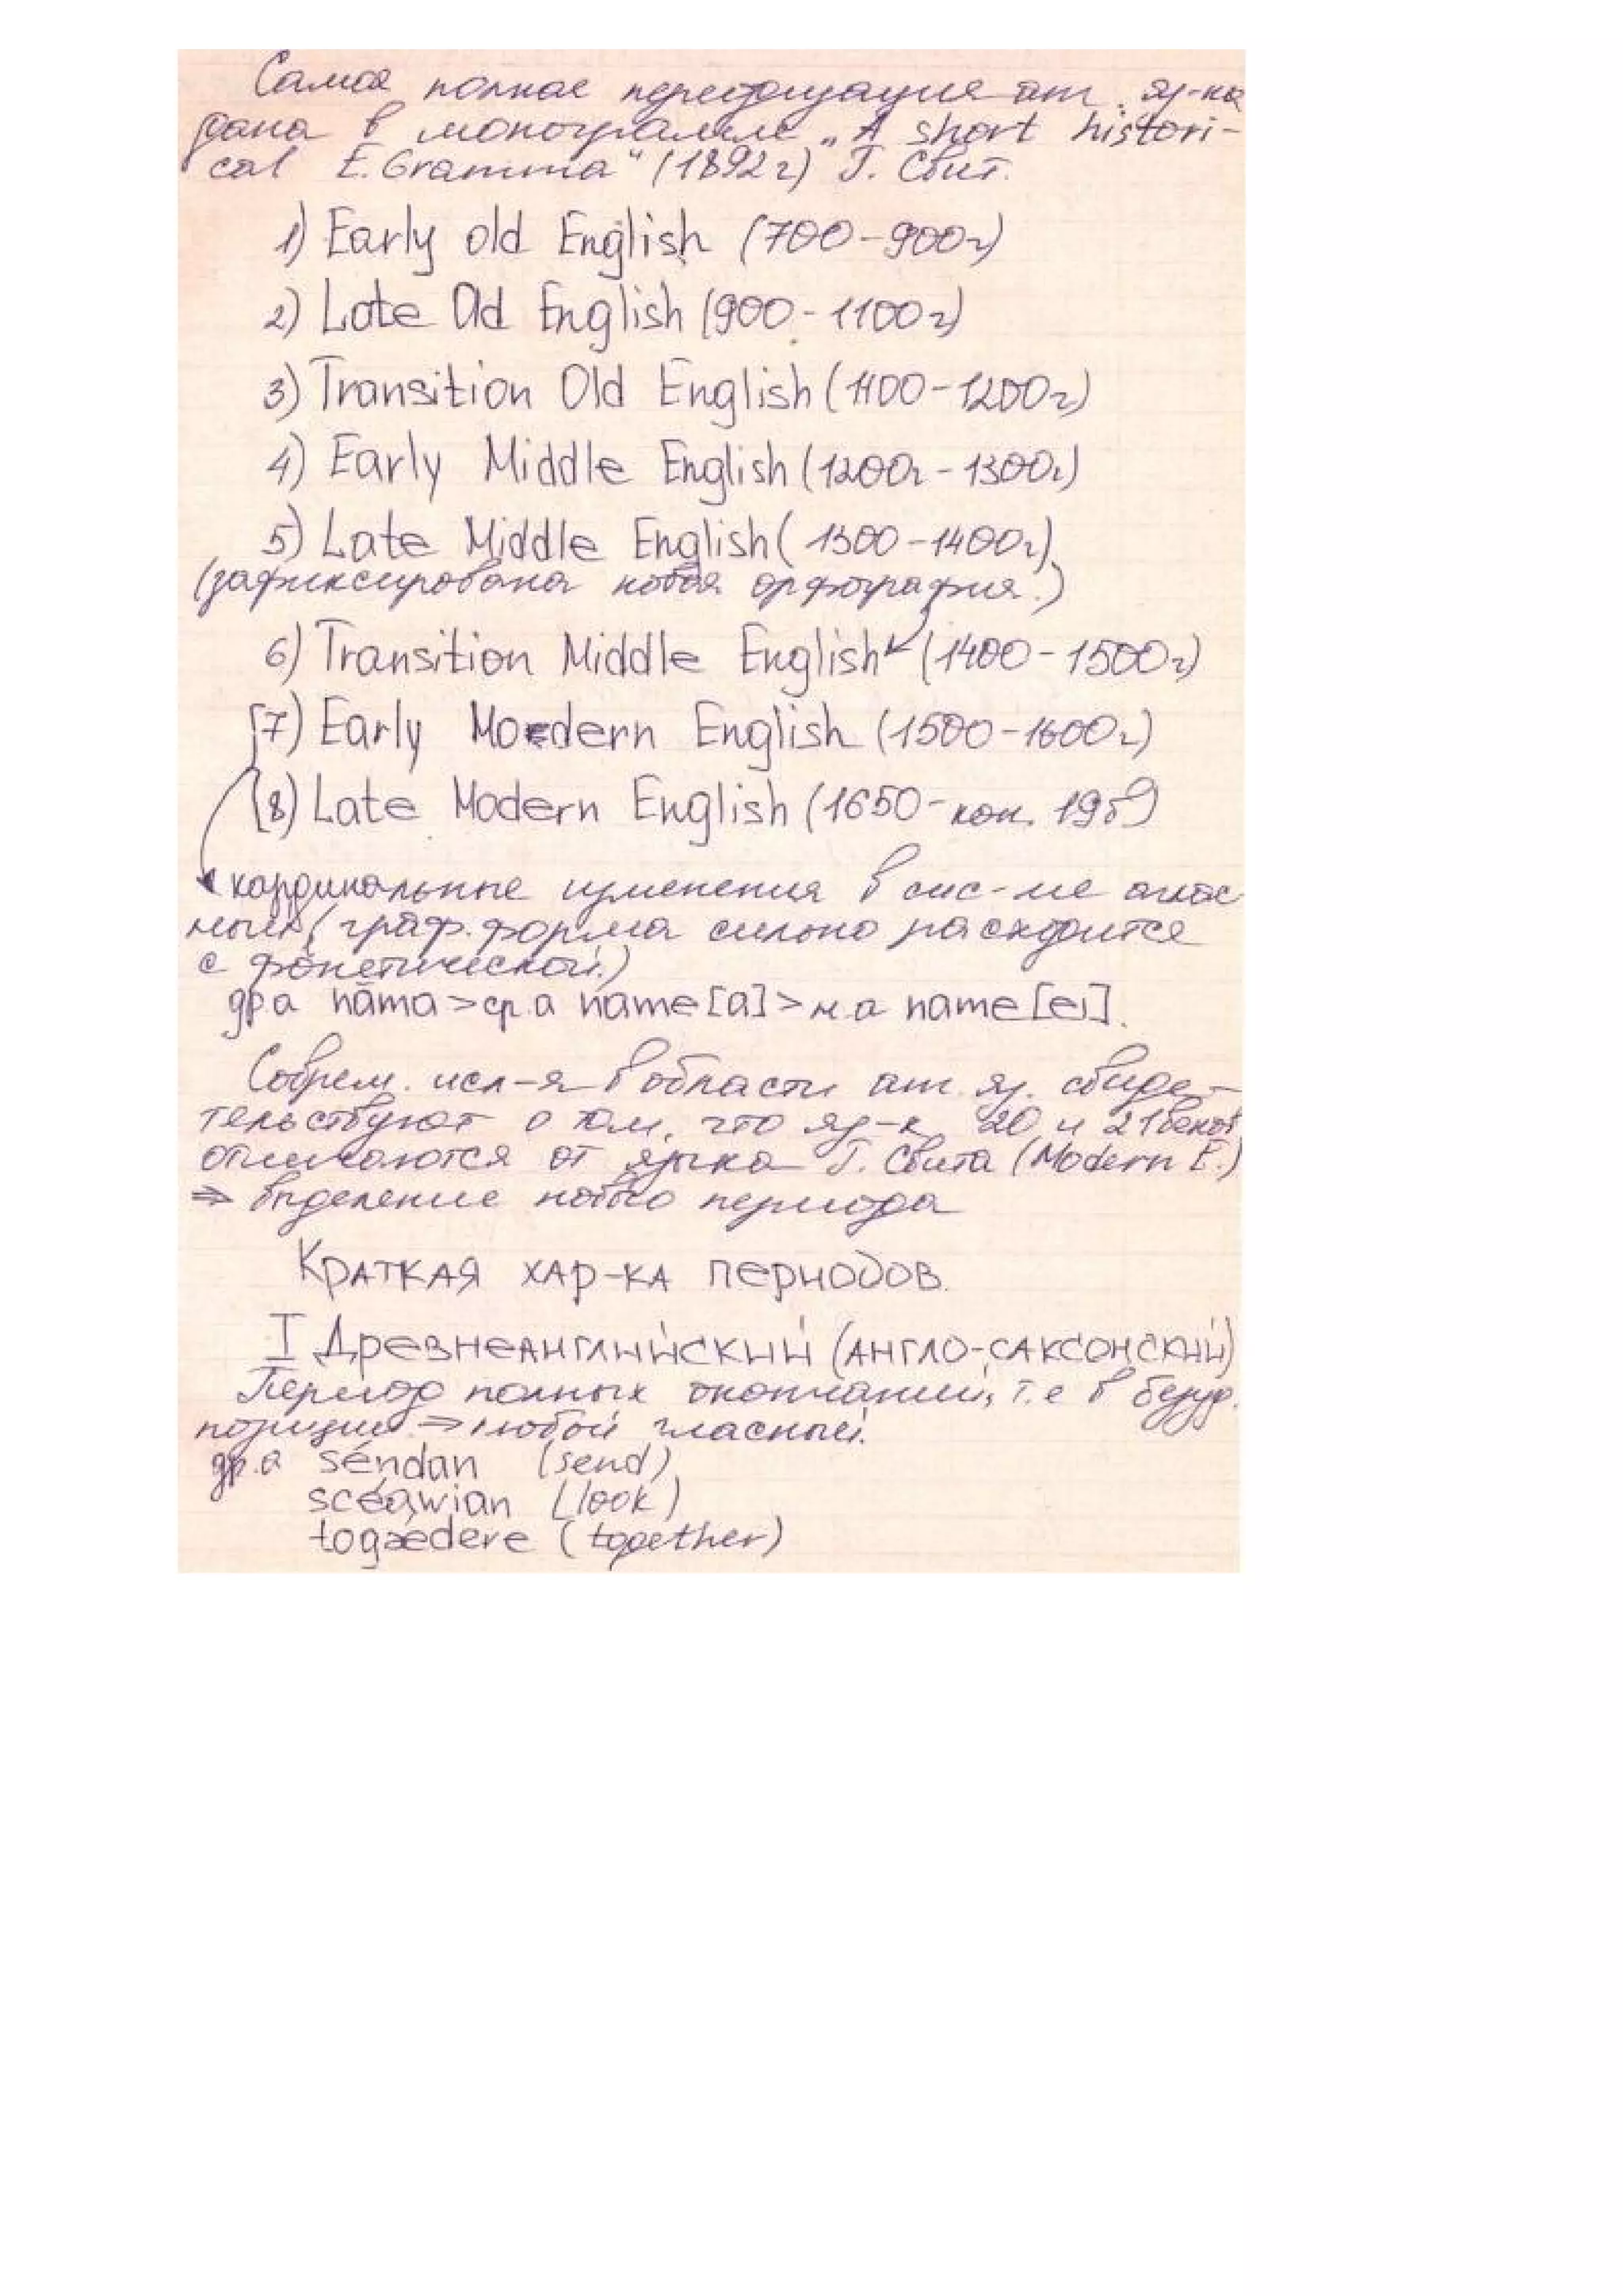 Самая полная периодизация анг. яз-ка
дана в монографии „A short histori-
cal E. Gramma" (1892г) Г. Свит.
1) Early old English (700-900г)
2) Late Old English (900-1100г)
3) Transition Old English (1100-1200г)
4) Early Middle English (1200г-1300г)
5) Late Middle English (1300-1400г)
(зафиксирована новая орфография.)
6) Transition Middle English (1400-1500г)
7) Early Modern English (1500-1600г)
8) Late Modern English (1650-кон. 19в)
кардинальные изменения в сис-ме глас
ных (граф. форма сильно расходится
с фонетической.)
др.а nāma > ср.а name [a] > н.а name [ei].
Соврем. исл-я в области анг. яз. свиде-
тельствуют о том, что яз-к 20 и 21 веков
отличаются от языка Г. Свита (Modern E.)
⇒ выделение нового периода
Краткая хар-ка периодов.
I Древнеанглийский (англо-саксонский)
Период полных окончаний, т.е в безуд.
позиции → любой гласный.
др.а séndan (send)
scéawian (look)
togædere (together)